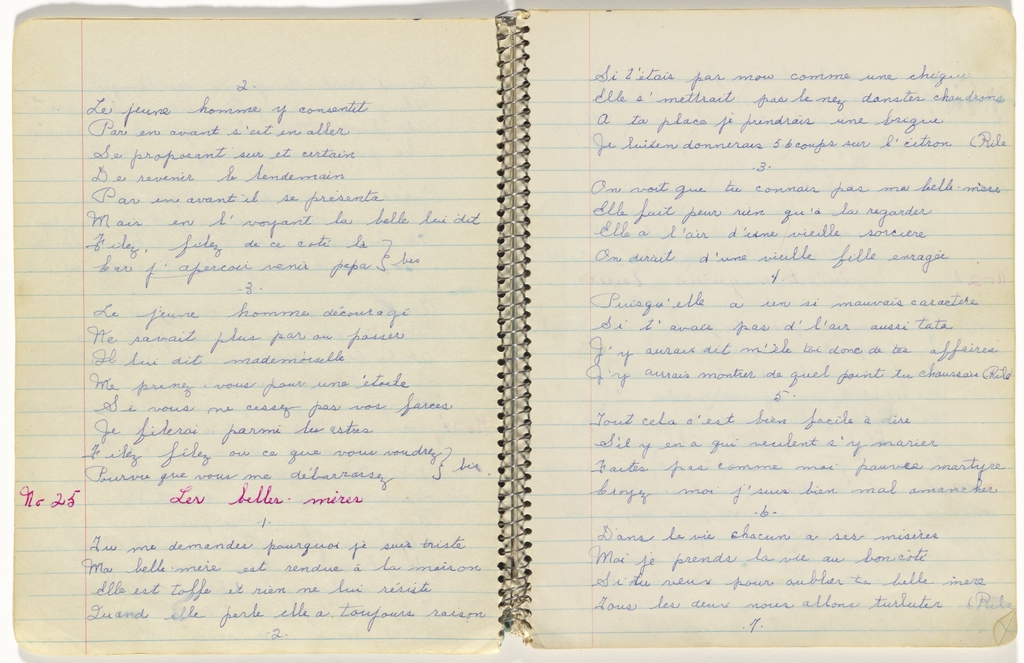 2.
Le jeune homme y consentit
Par en avant s'est en aller
Se proposant sur et certain
De revenir le lendemain
Par en avant il se présenta
Mais en l'voyant la belle lui dit
Filez, filez de ce coté la } bis
Car j'apercoi venir papa
-3-
Le jeune homme découragé
Ne savait plus par ou passer
Il lui dit mademoiselle
Me prenez-vous pour une étoile
Si vous ne cessez pas vos farces
Je filerai parmi les astres
Filez filez ou ce que vous voudrez } bis
Pourvu que vous me débarrassez
No 25 Les belles-mères
1.
Tu me demandes pourquoi je suis triste
Ma belle-mère est rendue à la maison
Elle est toffe et rien ne lui résiste
Quand elle parle elle a toujours raison
-2-
Si t'étais par mou comme une chique
Elle s'mettrait pas le nez dans tes chaudrons
A ta place je prendrais une brique
Je lui en donnerais 5 6 coups sur l'citron (Rile
-3-
On voit que tu connais pas ma belle-mère
Elle fait peur rien qu'à la regarder
Elle a l'air d'une vieille sorcière
On dirait d'une vieille fille enragée
4
Puisqu'elle a un si mauvais caractère
Si t'avais pas d'l'air aussi tata
J'y aurais dit mêle toi donc de tes affaires
J'y aurais montrer de quel point tu chaussais (Rile
5.
Tout cela c'est bien facile à dire
S'il y en a qui veulent s'y marier
Faites pas comme moi pauvre martyre
Croyez-moi j'suis bien mal amancher
-6-
Dans la vie chacun a ses misères
Moi je prends la vie au bon côté
Si tu veux pour oublier ta belle mère
Tous les deux nous allons turluter (Rile
.7.